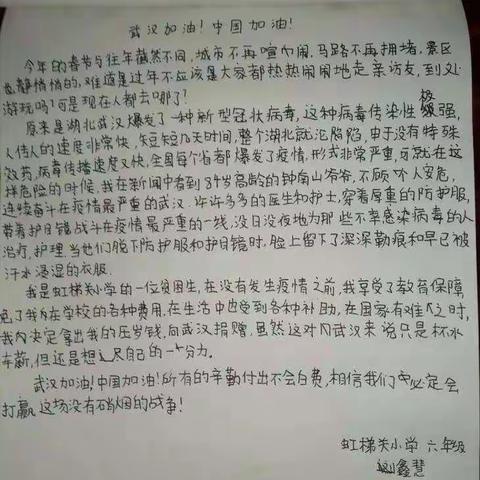 武汉加油！中国加油！
今年的春节与往年截然不同，城市不再喧闹，马路不再拥堵，景区
也静悄悄的，难道是过年不应该是大家都热热闹闹地走亲访友，到处
游玩吗？可是现在人都去哪了？
原来是湖北武汉爆发了一种新型冠状病毒，这种病毒传染性极强，
人传人的速度非常快，短短几天时间，整个湖北就沦陷陷，由于没有特殊
效药，病毒传播速度又快，全国每个省都爆发了疫情，形式非常严重，就在这
样危险的时候，我在新闻中看到84岁高龄的钟南山爷爷，不顾个人安危，
连续奋斗在疫情最严重的武汉。许许多多的医生和护士，穿着厚重的防护服，
带着护目镜战斗在疫情最严重的一线，没日没夜地为那些不幸感染病毒的人
治疗，护理。当他们脱下防护服和护目镜时，脸上留下了深深勒痕和早已被
汗水浸湿的衣服。
我是虹梯关小学的一位贫困生，在没有发生疫情之前，我享受了教育保障，
免了我在学校的各种费用，在生活中也受到各种补助，在国家有难之时，
我决定拿出我的压岁钱，向武汉捐赠，虽然这对武汉来说只是杯水
车薪，但还是想尽自己的一十分力。
武汉加油！中国加油！所有的辛勤付出不会白费，相信我们必定会
打赢这场没有硝烟的战争！
虹梯关小学 六年级
刘鑫慧